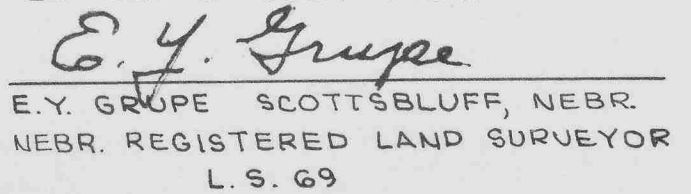 E. Y. Grupe
E.Y. GRUPE SCOTTSBLUFF, NEBR.
NEBR. REGISTERED LAND SURVEYOR
L. S. 69